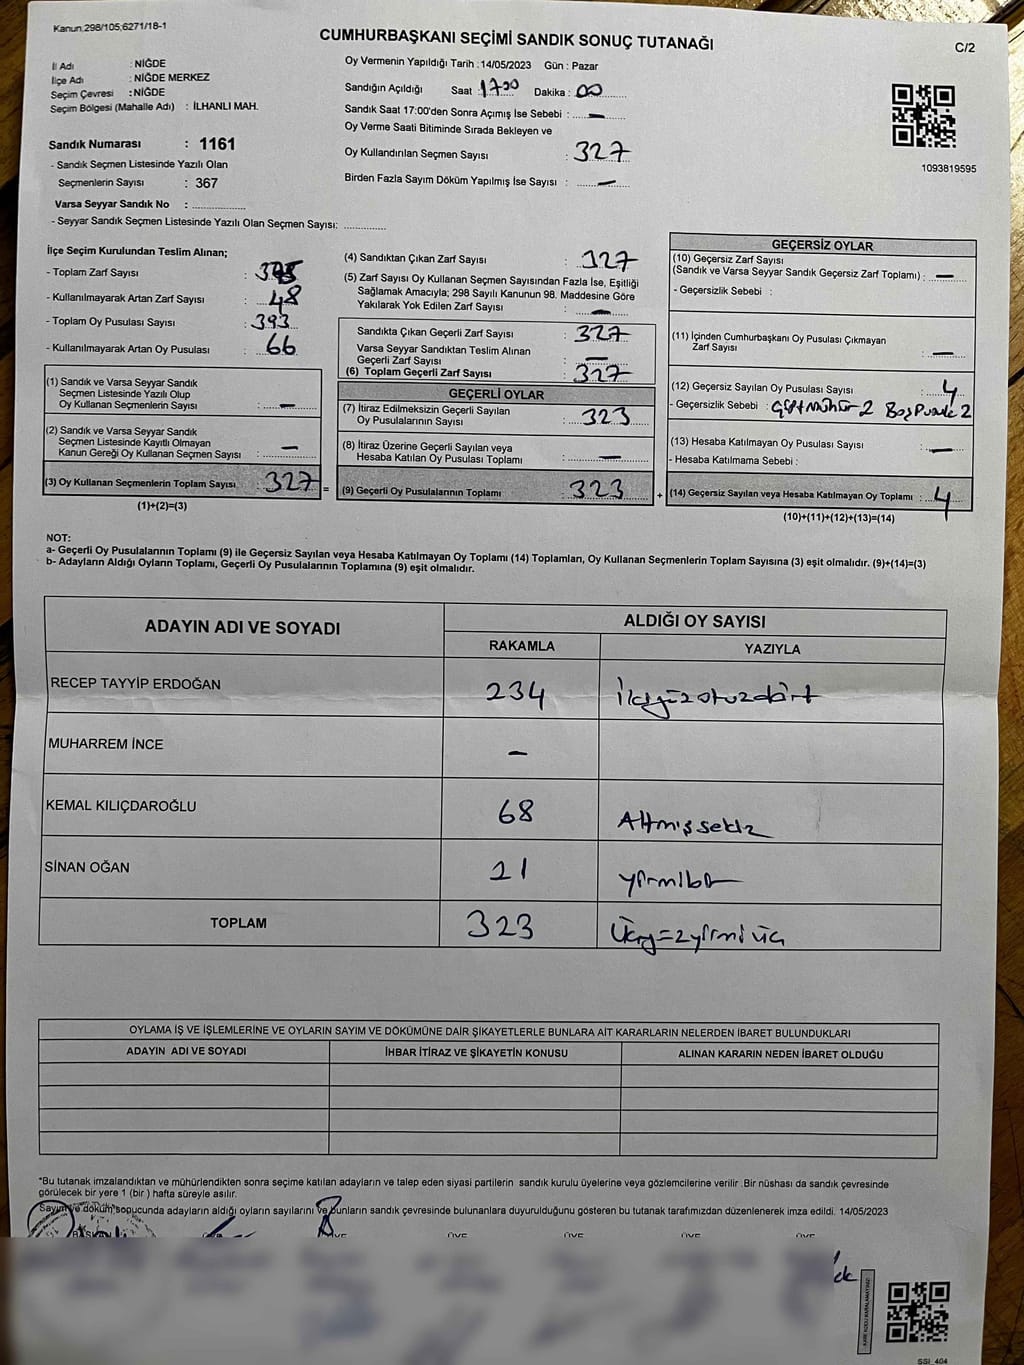 Kanun:298/105;6271/18-1
CUMHURBAŞKANI SEÇİMİ SANDIK SONUÇ TUTANAĞI
C/2
İl Adı : NİĞDE
İlçe Adı : NİĞDE MERKEZ
Seçim Çevresi : NİĞDE
Seçim Bölgesi (Mahalle Adı) : İLHANLI MAH.
Sandık Numarası : 1161
- Sandık Seçmen Listesinde Yazılı Olan
Seçmenlerin Sayısı : 367
Varsa Seyyar Sandık No : ..............
- Seyyar Sandık Seçmen Listesinde Yazılı Olan Seçmen Sayısı: ............
Oy Vermenin Yapıldığı Tarih : 14/05/2023 Gün : Pazar
Sandığın Açıldığı Saat : 1700 Dakika : 00
Sandık Saat 17:00'den Sonra Açımış İse Sebebi : —
Oy Verme Saati Bitiminde Sırada Bekleyen ve
Oy Kullandırılan Seçmen Sayısı : 327
Birden Fazla Sayım Döküm Yapılmış İse Sayısı : —
1093819595
İlçe Seçim Kurulundan Teslim Alınan;
- Toplam Zarf Sayısı :
- Kullanılmayarak Artan Zarf Sayısı : 48
- Toplam Oy Pusulası Sayısı : 393
- Kullanılmayarak Artan Oy Pusulası : 66
(1) Sandık ve Varsa Seyyar Sandık
Seçmen Listesinde Yazılı Olup
Oy Kullanan Seçmenlerin Sayısı : —
(2) Sandık ve Varsa Seyyar Sandık
Seçmen Listesinde Kayıtlı Olmayan
Kanun Gereği Oy Kullanan Seçmen Sayısı : —
(3) Oy Kullanan Seçmenlerin Toplam Sayısı : 327 =
(1)+(2)=(3)
(4) Sandıktan Çıkan Zarf Sayısı : 327
(5) Zarf Sayısı Oy Kullanan Seçmen Sayısından Fazla İse, Eşitliği
Sağlamak Amacıyla; 298 Sayılı Kanunun 98. Maddesine Göre
Yakılarak Yok Edilen Zarf Sayısı : —
Sandıkta Çıkan Geçerli Zarf Sayısı : 327
Varsa Seyyar Sandıktan Teslim Alınan
Geçerli Zarf Sayısı : —
(6) Toplam Geçerli Zarf Sayısı : 327
GEÇERLİ OYLAR
(7) İtiraz Edilmeksizin Geçerli Sayılan
Oy Pusulalarının Sayısı : 323
(8) İtiraz Üzerine Geçerli Sayılan veya
Hesaba Katılan Oy Pusulası Toplamı : —
(9) Geçerli Oy Pusulalarının Toplamı : 323 +
GEÇERSİZ OYLAR
(10) Geçersiz Zarf Sayısı
(Sandık ve Varsa Seyyar Sandık Geçersiz Zarf Toplamı) : —
- Geçersizlik Sebebi :
(11) İçinden Cumhurbaşkanı Oy Pusulası Çıkmayan
Zarf Sayısı : —
(12) Geçersiz Sayılan Oy Pusulası Sayısı : 4
- Geçersizlik Sebebi : Çift Mühür 2 Boş Pusula 2
(13) Hesaba Katılmayan Oy Pusulası Sayısı : —
- Hesaba Katılmama Sebebi :
(14) Geçersiz Sayılan veya Hesaba Katılmayan Oy Toplamı : 4
(10)+(11)+(12)+(13)=(14)
NOT:
a- Geçerli Oy Pusulalarının Toplamı (9) ile Geçersiz Sayılan veya Hesaba Katılmayan Oy Toplamı (14) Toplamları, Oy Kullanan Seçmenlerin Toplam Sayısına (3) eşit olmalıdır. (9)+(14)=(3)
b- Adayların Aldığı Oyların Toplamı, Geçerli Oy Pusulalarının Toplamına (9) eşit olmalıdır.
ADAYIN ADI VE SOYADI ALDIĞI OY SAYISI
RAKAMLA YAZIYLA
RECEP TAYYİP ERDOĞAN 234 İkiyüzotuzdört
MUHARREM İNCE —
KEMAL KILIÇDAROĞLU 68 Altmışsekiz
SİNAN OĞAN 21 yirmibir
TOPLAM 323 Üçyüzyirmi üç
OYLAMA İŞ VE İŞLEMLERİNE VE OYLARIN SAYIM VE DÖKÜMÜNE DAİR ŞİKAYETLERLE BUNLARA AİT KARARLARIN NELERDEN İBARET BULUNDUKLARI
ADAYIN ADI VE SOYADI İHBAR İTİRAZ VE ŞİKAYETİN KONUSU ALINAN KARARIN NEDEN İBARET OLDUĞU
*Bu tutanak imzalandıktan ve mühürlendikten sonra seçime katılan adayların ve talep eden siyasi partilerin sandık kurulu üyelerine veya gözlemcilerine verilir .Bir nüshası da sandık çevresinde
görülecek bir yere 1 (bir ) hafta süreyle asılır.
Sayım ve döküm sonucunda adayların aldığı oyların sayılarını ve bunların sandık çevresinde bulunanlara duyurulduğunu gösteren bu tutanak tarafımızdan düzenlenerek imza edildi. 14/05/2023
BAŞKAN ÜYE ÜYE ÜYE ÜYE ÜYE
SSI_404